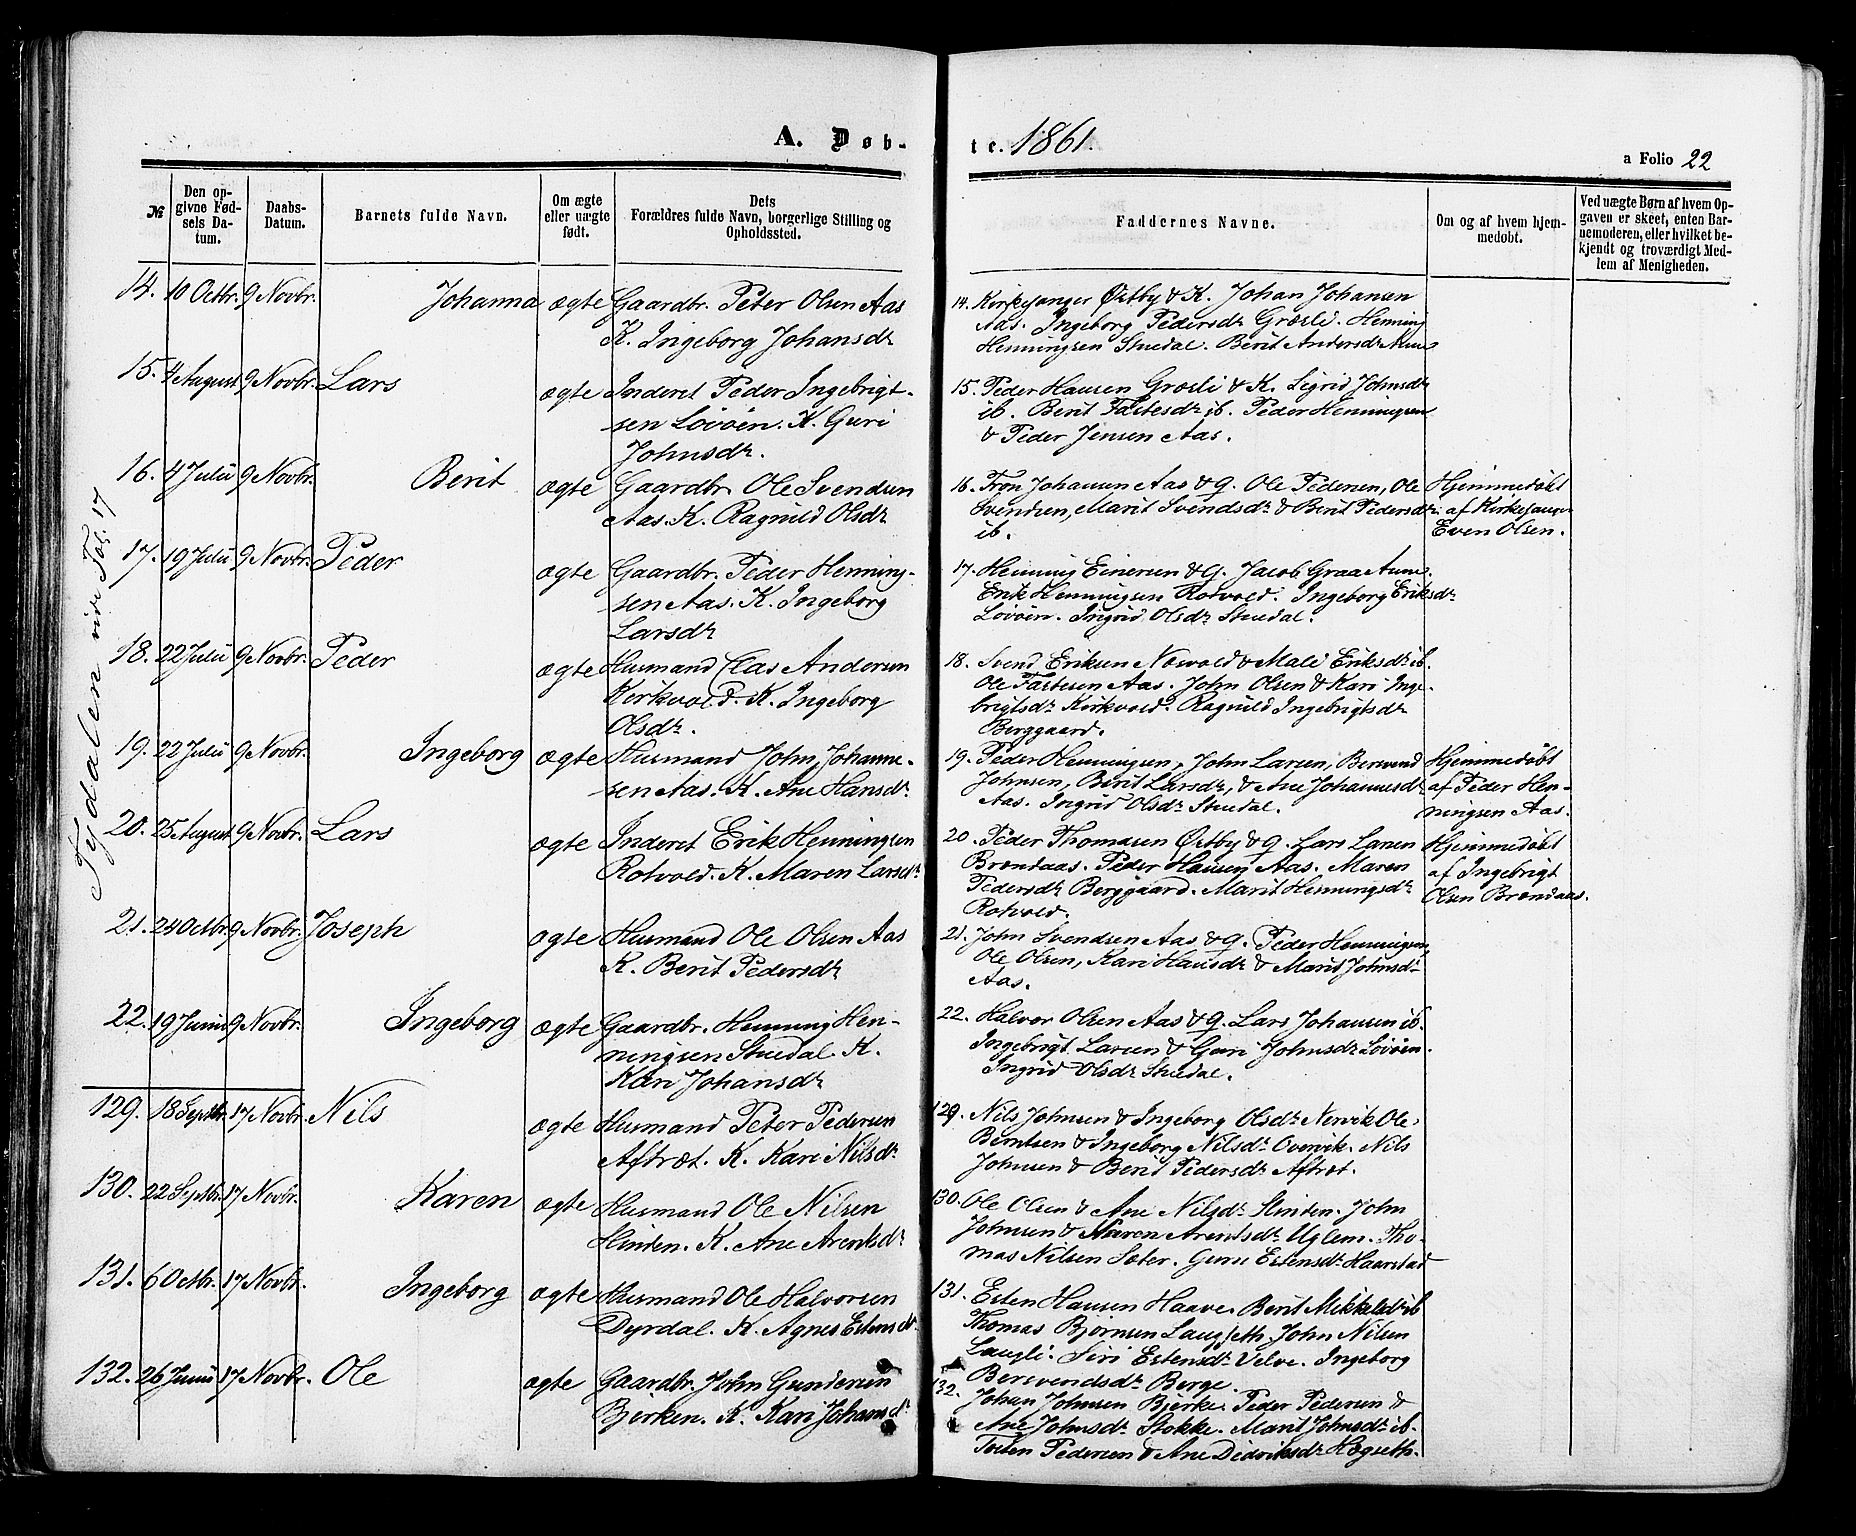 A. Døb-
№
Den opgivne Fødsels Datum.
Daabs-Datum.
Barnets fulde Navn.
Om ægte eller uægte født.
Dets Forældres fulde Navn, borgerlige Stilling og Opholdssted.
Tydalen vide Fol. 17
14. 10 Octbr. 9 Novbr. Johanna ægte Gaardbr. Peter Olsen Aas
K. Ingeborg Johansdr
15. 4 August 9 Novbr. Lars ægte Inderst Peder Ingebrigt-
sen Løvøen. K. Guri
Johnsdr.
16. 4 Julii 9 Novbr. Berit ægte Gaardbr. Ole Svendsen
Aas. K. Ragnild Olsdr
17. 19 Julii 9 Novbr. Peder ægte Gaardbr. Peder Henning-
sen Aas. K. Ingeborg
Larsdr
18. 22 Julii 9 Novbr. Peder ægte Husmand Claas Andersen
Kirkvold. K. Ingeborg
Olsdr.
19. 22 Julii 9 Novbr. Ingeborg ægte Husmand John Johanne-
sen Aas. K. Ane Hansdr.
20. 25 August 9 Novbr. Lars ægte Inderst Erik Henningsen
Rotvold. K. Maren Larsdr
21. 24 Octbr. 9 Novbr. Joseph ægte Husmand Ole Olsen Aas
K. Berit Pedersdr
22. 19 Junii 9 Novbr. Ingeborg ægte Gaardbr. Henning Hen-
ningsen Stuedal. K.
Kari Johansdr
129. 18 Septbr. 17 Novbr. Nils ægte Husmand Peter Pedersen
Aftret. K. Kari Nilsdr.
130. 22 Septbr. 17 Novbr. Karen ægte Husmand Ole Nilsen
Hinten. K. Ane Arentsdr
131. 6 Octbr. 17 Novbr. Ingeborg ægte Husmand Ole Halvorsen
Dyrdal. K. Agnes Estensdr.
132. 26 Junii 17 Novbr. Ole ægte Gaardbr. John Gundersen
Bjerken. K. Kari Johansdr
te. 1861.
a Folio 22
Faddernes Navne.
Om og af hvem hjemmedøbt.
Ved uægte Børn af hvem Opgaven er skeet, enten Barnemoderen, eller hvilket bekjendt og troværdigt Medlem af Menigheden.
14. Kirkesanger Østby & K. Johan Johansen
Aas. Ingeborg Pedersdr Græsli. Henning
Henningsen Stuedal. Berit Andersdr Aune
15. Peder Hansen Græsli & K. Sigrid Johnsdr
ib. Berit Fastesdr ib. Peder Henningsen
& Peder Jensen Aas.
16. Tron Johansen Aas & g. Ole Pedersen, Ole
Svendsen, Marit Svendsdr & Berit Pedersdr
ib.
Hjemmedøbt
af Kirkesanger
Even Olsen.
17. Henning Einersen & g. Jacob Graa Aune.
Erik Henningsen Rotvold. Ingeborg Eriksdr
Løvøen. Ingrid Olsdr Stuedal.
18. Svend Eriksen Norvold & Mali Eriksdr ib.
Ole Fastesen Aas. John Olsen & Kari Inge-
brigtsdr Kirkvold. Ragnild Ingebrigtsdr
Berggaard.
19. Peder Henningsen, John Larsen, Bersvend
Johnsen, Berit Larsdr, & Ane Johannesdr
Aas. Ingrid Olsdr Stuedal.
Hjemmedøbt
af Peder Hen-
ningsen Aas.
20. Peder Thomasen Østby & g. Lars Larsen
Brøndaas. Peder Hansen Aas. Maren
Pedersdr Berggaard. Marit Henningsdr
Rotvold.
Hjemmedøbt
af Ingebrigt
Olsen Brøndaas.
21. John Svendsen Aas & g. Peder Henningsen
Ole Olsen, Kari Hansdr & Marit Johnsdr
Aas.
22. Halvor Olsen Aas & g. Lars Johansen ib.
Ingebrigt Larsen & Guri Johnsdr Løvøen.
Ingrid Olsdr Stuedal.
129. Nils Johnsen & Ingeborg Olsdr Nervik Ole
Berntsen & Ingeborg Nilsdr Overvik. Nils
Johnsen & Berit Pedersdr Aftret.
130. Ole Olsen & Ane Nilsdr Hinten. John
Johnsen & Maren Arentsdr Uglem. Tho-
mas Nilsen Sæter. Guru Estensdr Haarstad
131. Esten Hansen Haave. Berit Mikkelsdr ib
Thomas Bjørnsen Laugseth. John Nilsen
Laugli. Siri Estensdr Velve. Ingeborg
Bersvendsdr Berge.
132. Johan Johnsen Bjerke. Peder Pedersen &
Ane Johnsdr Stokke. Marit Johnsdr ib.
Pedersen & Ane Didriksdr Høgseth.